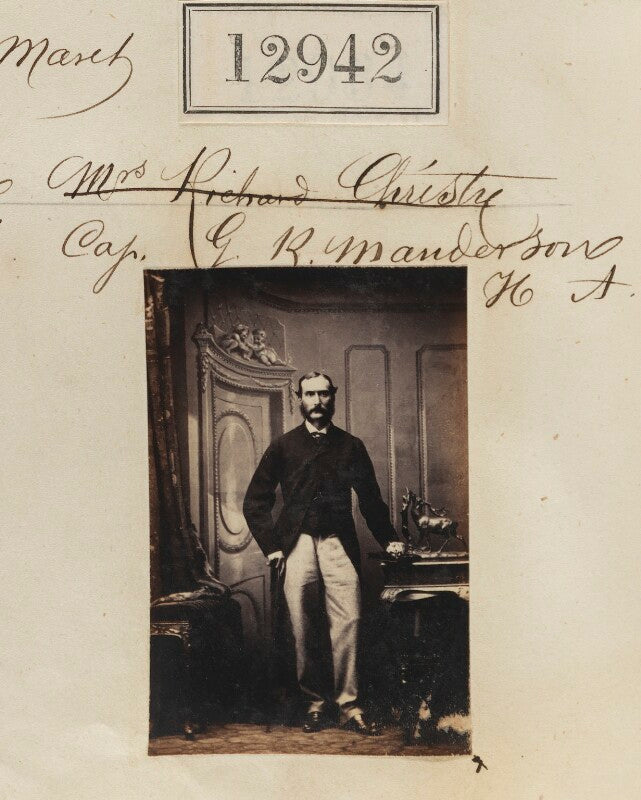 March
12942
Mrs Richard Christy
Cap. G R. Manderson
H A.